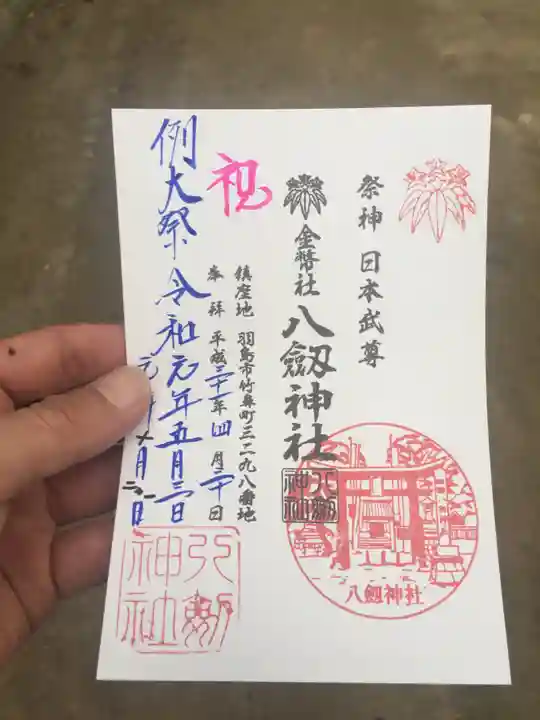 祭神 日本武尊
金幣社 八劔神社
八劔神社
鎮座地 羽島市竹鼻町三二九八番地
奉拝 平成三十一年四月三十日
祝
例大祭 令和元年五月三日
八劔神社
八劔神社